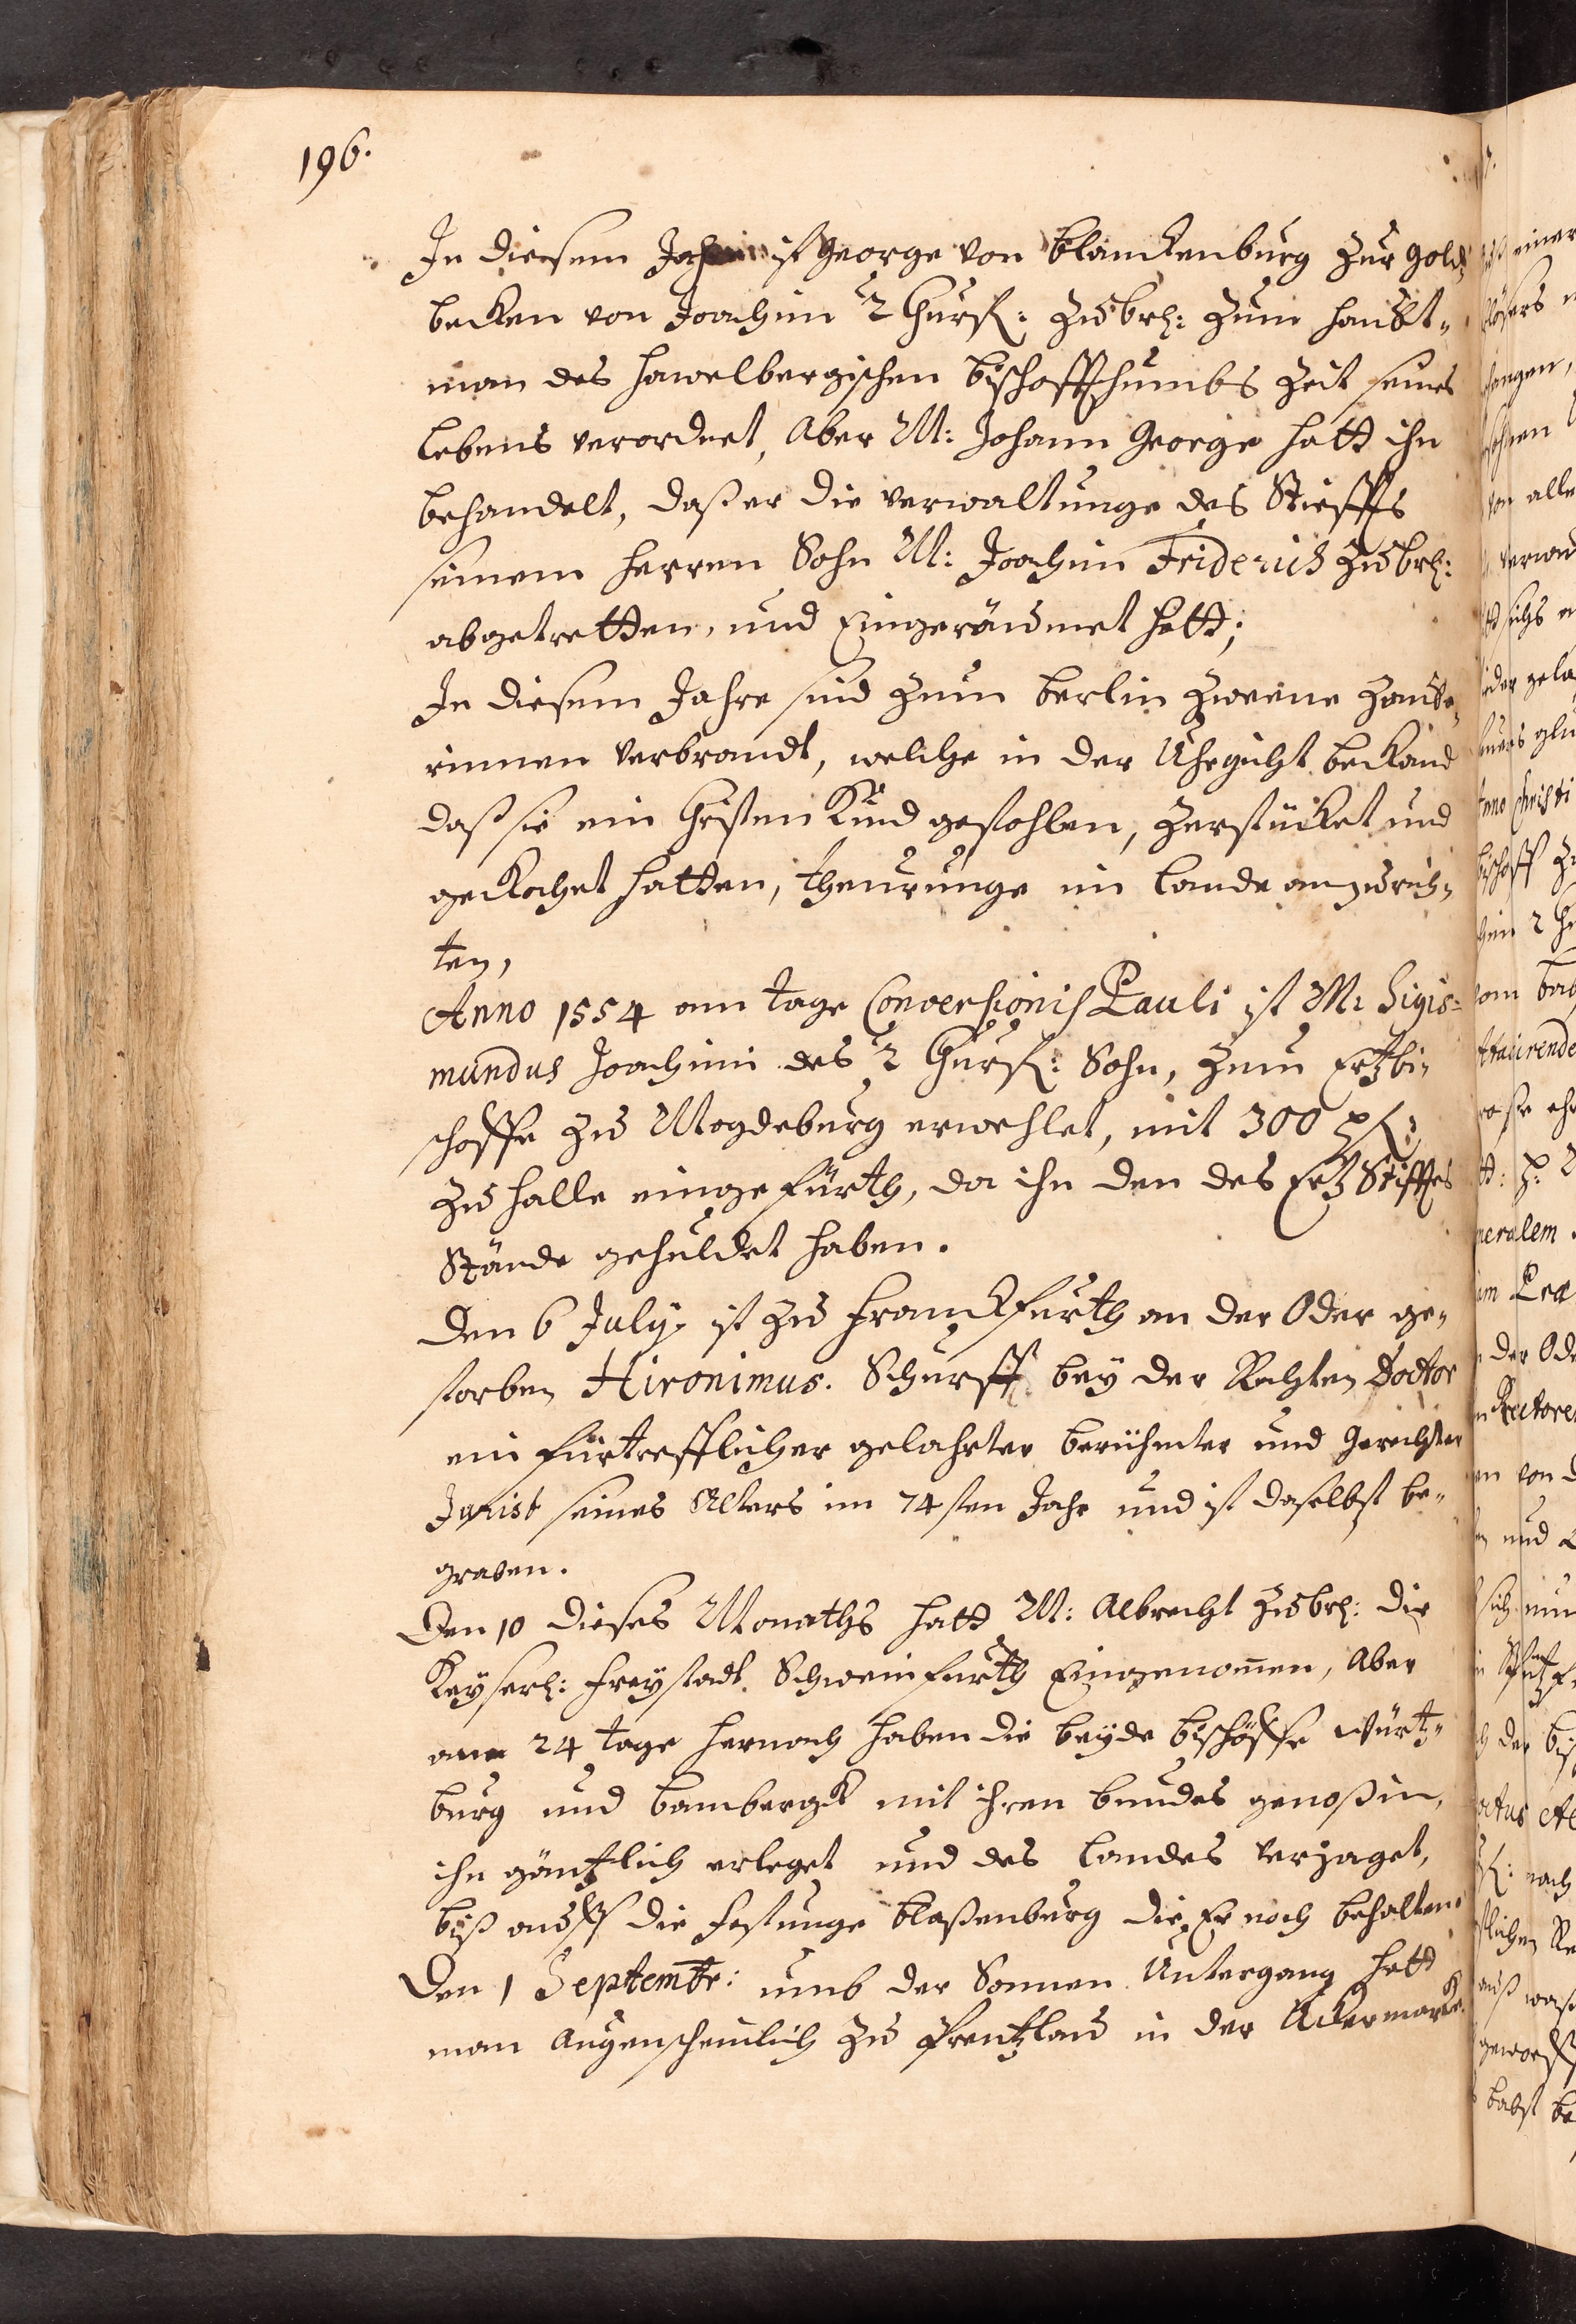 196.
In diesem Jahr ist George von Blanckenburg zur Gold⸗
becken von Joachim 2 Churf: zu Brh: zum Haubt⸗
man des Hawelbergischen Bischoffthumbs Zeit seines
Lebens verordnet, Aber M: Johann George hatt ihn
behandelt, daß er die verwaltunge des Stiffts
seinem Herren Sohn M: Joachim Friderich zu Brh:
abgetretten, und Eingeräumet hatt;
In diesem Jahre sind zum Berlin zweene Zaube⸗
rinnen verbrandt, welche in der Uhrgicht bekand
daß sie ein Christen Kind gestohlen, zerstücket und
gekochet hatten, theurunge im Lande anzurich⸗
ten,
Anno 1554 am tage Conversionis Pauli ist M: Sigis⸗
mundus Joachimi des 2 Churf: Sohn, zum Ertzbi⸗
schoffe zu Magdeburg erwehlet, mit 300 pf:
zu Halle eingefürth, da ihn den des Ertz Stifftes
Stände gehuldet haben.
Den 6 July ist zu Franckfurth an der Oder ge⸗
storben Hironimus. Schurff bey der Rechten Doctor
ein fürtrefflicher gelahrter berühmter und Gerechter
Jurist seines Alters im 74sten Jahr und ist daselbst be⸗
graben.
Den 10 dieses Monaths hatt M: Albrecht zu Brh: die
Keyserl: Freystadt Schweinfurth Eingenom̄en, Aber
am 24 tage hernach haben die beyde Bischöffe Würtz⸗
burg und Bambergk mit ihren bundes genoßen,
ihn gäntzlich erleget und des Landes verjaget,
biß auff die Festunge Blaßenburg die Er noch behalten.
Den 1 Septembr: umb der Sonnen Untergang hatt
man Augenscheinlich zu Prentzlau in der Uckermarck